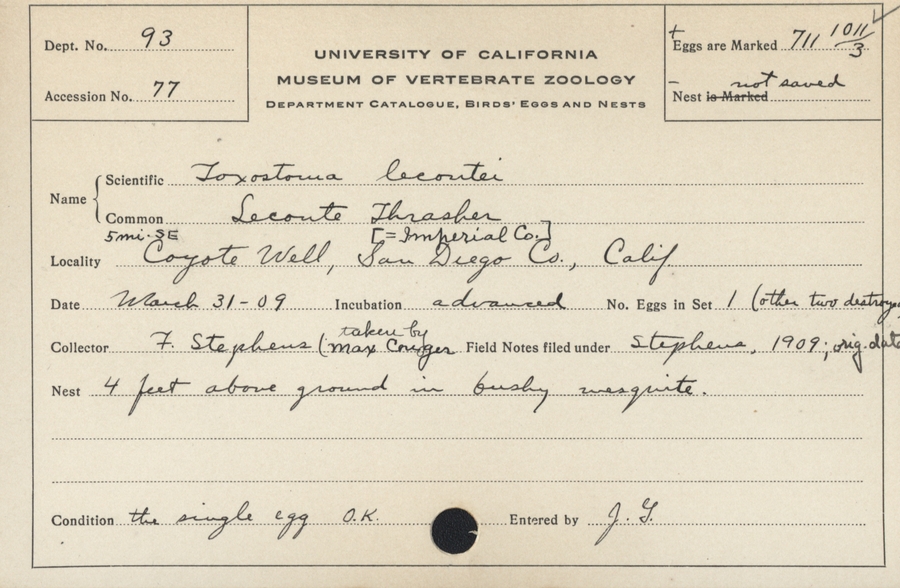 Dept. No. 93
Accession No. 77
UNIVERSITY OF CALIFORNIA
MUSEUM OF VERTEBRATE ZOOLOGY
DEPARTMENT CATALOGUE, BIRDS' EGGS AND NESTS
+ Eggs are Marked 711 1011/3
- Nest is Marked not saved
Name
Scientific Toxostoma lecontei
Common Leconte Thrasher
5mi. SE [=Imperial Co.]
Locality Coyote Well, San Diego Co., Calif
Date March 31-09 Incubation advanced No. Eggs in Set 1 (other two destroyed
taken by
Collector F. Stephens (Max Field Notes filed under Stephens, 1909; orig. data
Nest 4 feet above ground in bushy mesquite.
Condition the single egg O.K. Entered by J. G.